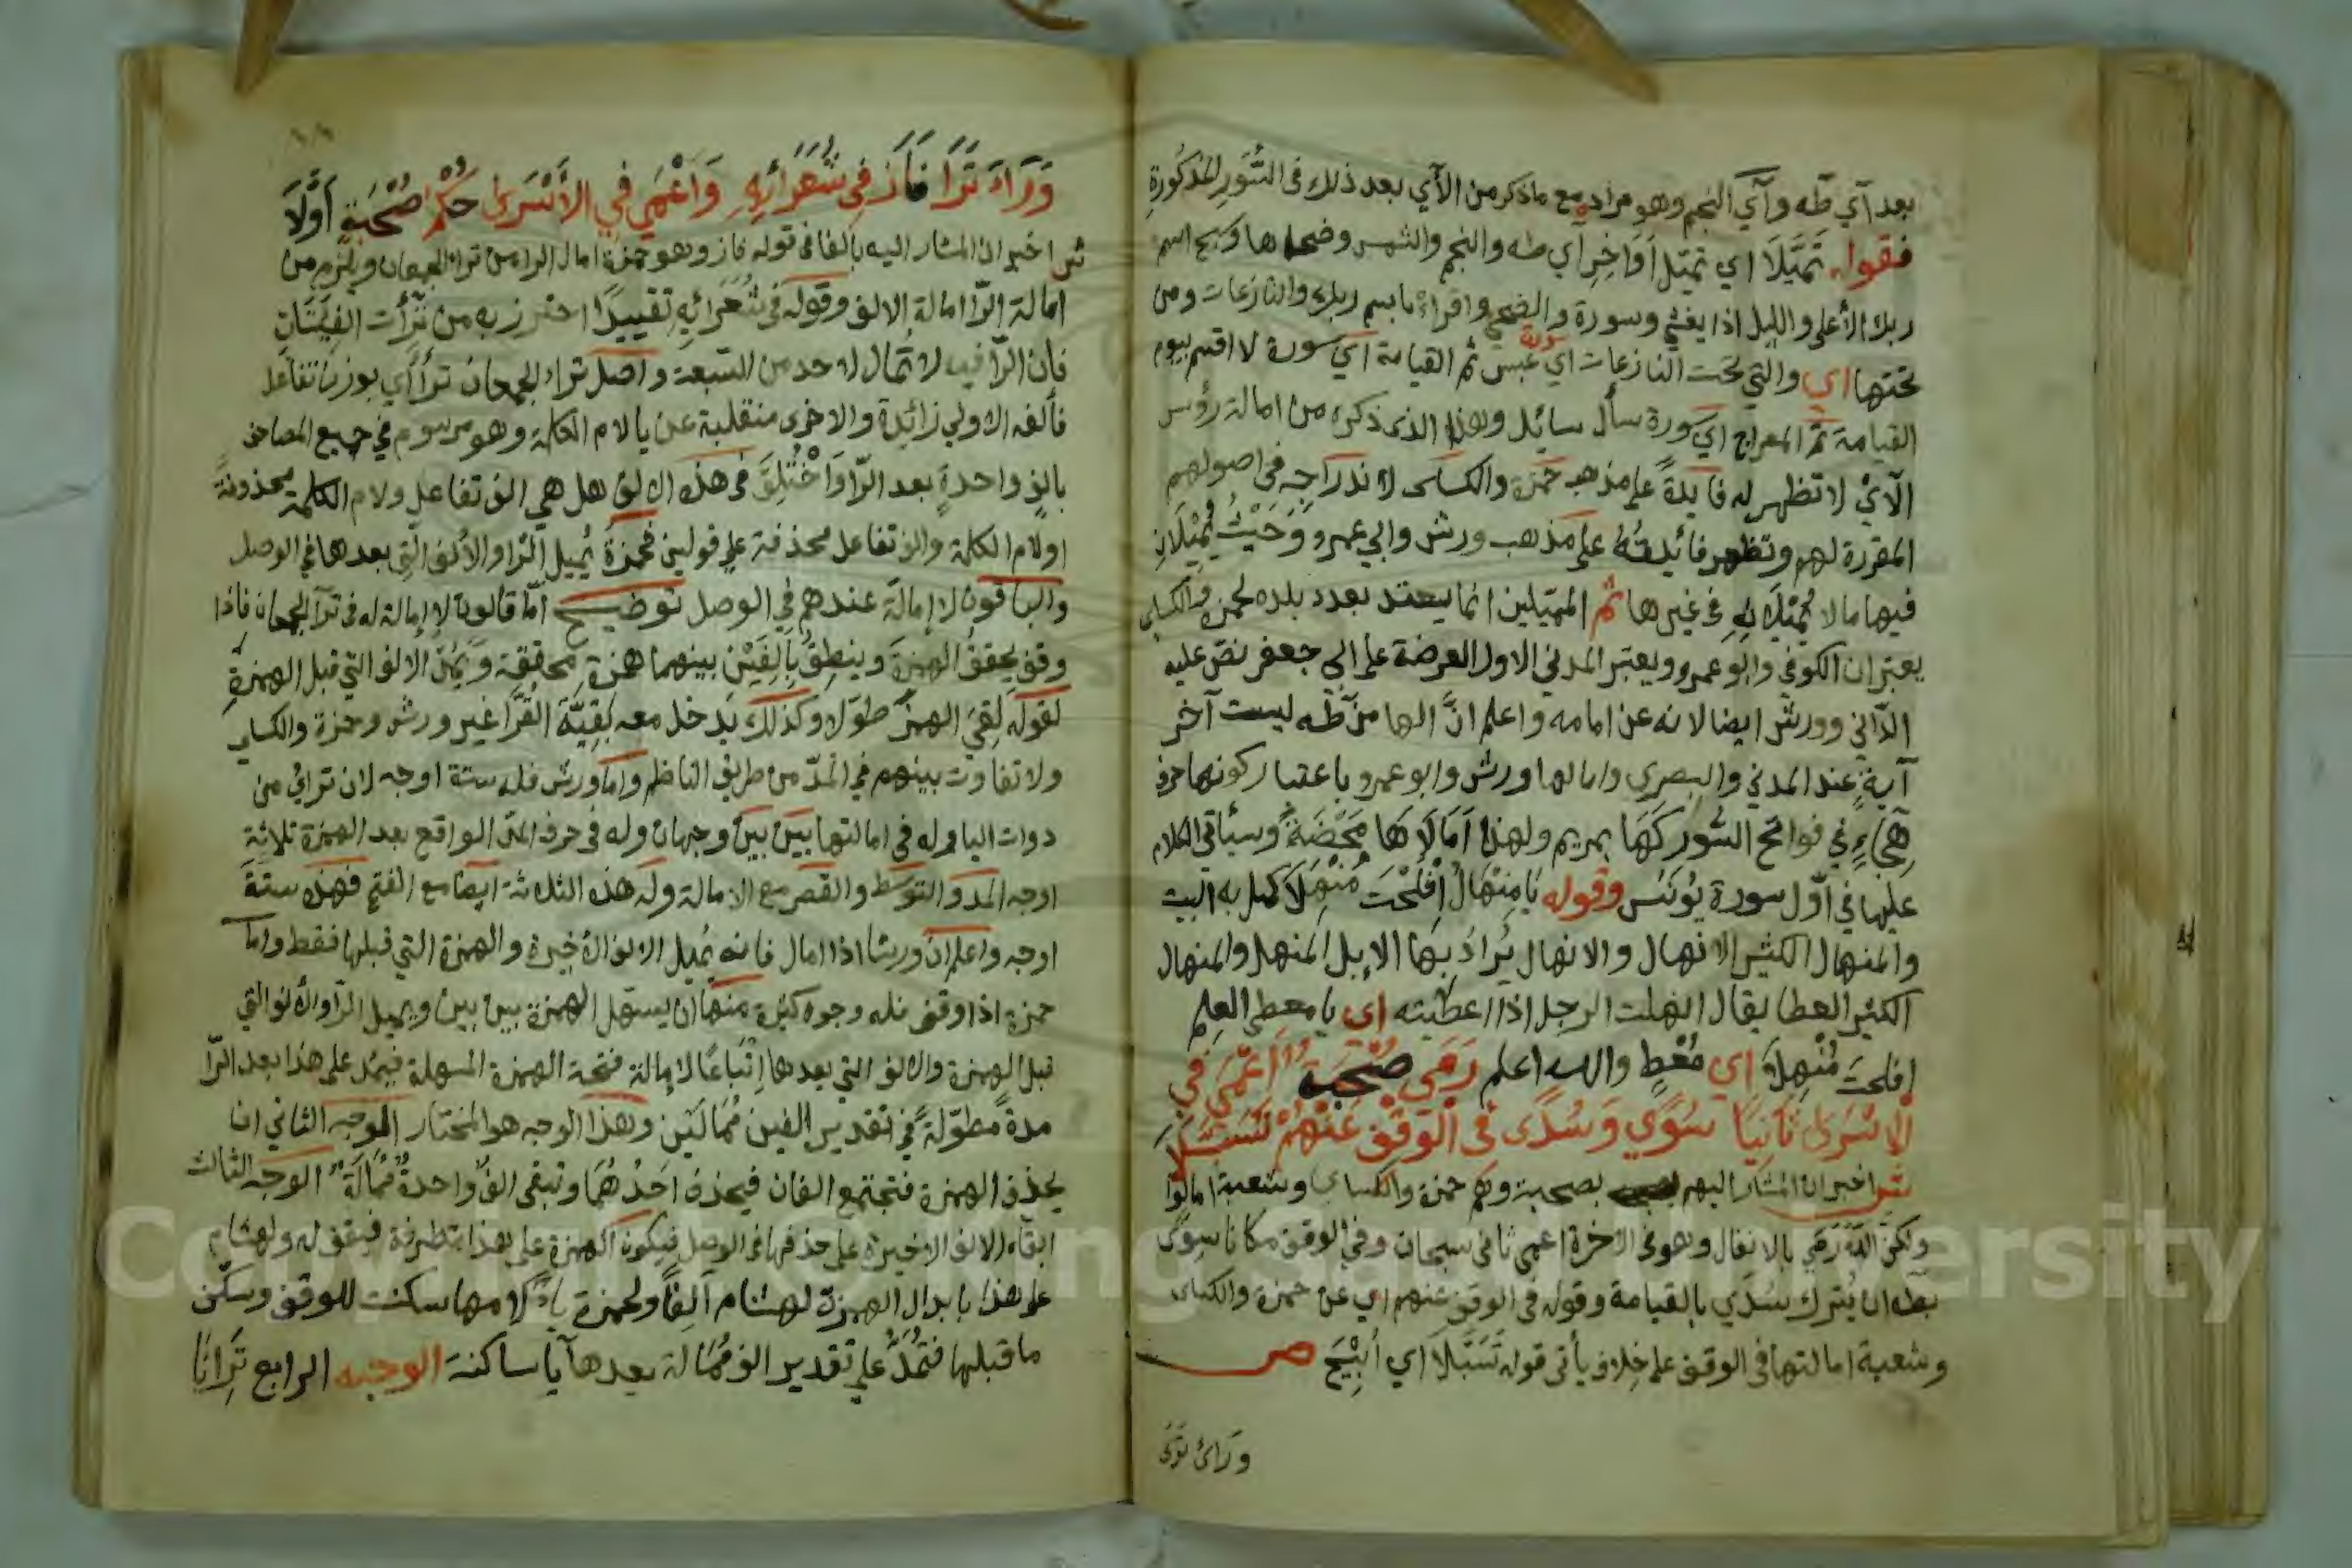 بعد آي طه وآي النجم وهو مراده مع ما ذكر من الآي بعد ذلك في السُّوَر المذكورة
فقوله تَمَيَّلَا اي تميّل اَوَاخِر آي طه والنجم والشمس وضحاها وسبح اسم
ربك الأعلى والليل اذا يغشى وسورة والضحى واقرأ باسم ربك والنازعات ومن
تحتها اي والتي تحت النازعات اي سورة عبس ثم القيامة اي سورة لا اقسم بيوم
القيامة ثم المعراج اي سورة سأل سائل وهذا الذي ذكره من امالة رؤس
الآي لا تظهر له فايدة على مذهب حمزة والكساى لاندراجه في اصولهم
المقررة لهم وتظهر فائدته على مذهب ورش وابي عمرو وَحَيْثُ يُمِيْلَانِ
فيها ما لا يُمِيْلَانِهِ في غيرها ثم المميلين انما يعتد بعدد بلده لحمزة والكساى
يعتبران الكوفي وابو عمرو ويعتبر المدني الاول العرضة على ابي جعفر نصّ عليه
الدّاني وورش ايضا لانه عن امامه واعلم انَّ الها من طٰه ليست آخر
آية عند المدني والبصري وامالها ورش وابو عمرو باعتبار كونها حرف
هِجَاءٍ في فواتح السُّور كَهَا بمريم ولهذا اَمَالَاهَا مَحْضَةً وسيأتي الكلام
عليها في اوّل سورة يُونس وقوله يَا مِنْهَالُ اِفْلَحْتَ مُنْهِلَا كمل به البيت
والمنهال الكثير الانهال والانهال يُرادُ بها الاِبل المنهل والمنهال
الكثير العطا يقال انهلت الرجل اذا اعطيته اي يا معطي العلم
افلحتَ مُنْهِلًا اي مُعْطٍ والله اعلم رَمَى صُحْبَةٌ اَعْمَى في
الاِسْرَى ثَانِيًا سُوًى وَسُدًى في الوَقْفِ عَنْهُمْ تَسَبَّلَا
ش اخبر ان المشار اليهم بصحبة وهم حمزة والكساي وشعبة امالوا
ولكن الله رَمَى بالانفال وهو في الاخرة اعمى ثاني سبحان وفي الوقف مكانا سوى
بطه ان يُترك سُدًي بالقيامة وقوله في الوقف عنهم اي عن حمزة والكساى
وشعبة امالتها في الوقف على خلاف يأتى قوله تَسَبَّلَا اي أُبِيْحَ ص
وراى ترى
وَرَاءَ تَرَا فَازَ في شُعَرَائِهِ وَاَعْمَى في الاِسْرَى حُكْمُ صُحْبَةٍ اَوَّلَا
ش اخبر ان المشار اليه بالفا في قوله فاز وهو حمزة امال الرا من تراء الجمعان ويلزم من
امالة الرّا امالة الالف وقوله في شُعَرَائِهِ تقييدًا احترز به من تَرَأَت الفِئَتَانِ
فان الرّا فيه لا تُمال لاحد من السّبعة واصل تراء الجمعان تَرَاأَي بوزن تفاعل
فألفه الاولى زائدة والاخرى منقلبة عن يا لام الكلمة وهو مرسوم في جميع المصاحف
بالفٍ واحدةٍ بعد الرّا وَاخْتُلِفَ في هذه الالف هل هي الف تفاعل ولام الكلمة محذوفة
او لام الكلمة والف تفاعل محذفة على قولين فحمزةُ يُميل الرّا والألف التي بعدها في الوصل
والباقون لا إمالة عندهم في الوصل توضيح أمّا قالون لا إمالة له في تراء الجمعان فاذا
وقف يحققُ الهمزةَ وينطقُ بألِفَيْنِ بينهما همزة محققة وَيَمُدّ الالف التي قبل الهمزة
لقوله لَقِيَ الهمزَ طوّلا وكذلك يَدخل معه بقيّة القُرّا غير ورش وحمزة والكساي
ولا تفاوت بينهم في المدّ من طريق الناظم وامّا ورش فله ستة اوجه لان تراي من
دوات اليا وله في امالتها بَينَ بَينَ وجهان وله في حرف المدّ الواقع بعد الهمزة ثلاثة
اوجه المد والتوسط والقصر مع الامالة وله هذه الثلاثة ايضا مع الفتح فهذه ستة
اوجه واعلم ان ورشا اذا امال فانه يُميل الالف الأخيرة والهمزة التي قبلها فقط وامّا
حمزة اذا وقف فله وجوه كثيرة منها ان يسهل الهمزة بين بين ويميل الرّا والألف التي
قبل الهمزة والالف التي بعدها اِتْبَاعًا لاِمالة فتحة الهمزة المسهلة فيمُد على هذا بعد الرّا
مدةً مطوّلةً في تقدير الفين مُمَالَيَن وهذا الوجه هو المختار الوجه الثاني ان
يحذف الهمزة فتجتمع الفان فيحذف اَحَدُهُمَا وتبقى الفٌ واحدةٌ مُمَالَةٌ الوجه الثالث
ابقاء الالف الاخيرة على حذفها في الوصل فيكون الهمزة على هذا متطرفة فيقف له ولهشام
على هذا بابدال الهمزة لهشام اَلِفًا ولحمزة يا لامها سكنت للوقف وسكّن
ما قبلها فَتُمَدُّ على تقدير الف مُمَالة بعدها يَا ساكنة الوجه الرابع تَرَانَا
Copyright © King Saud University